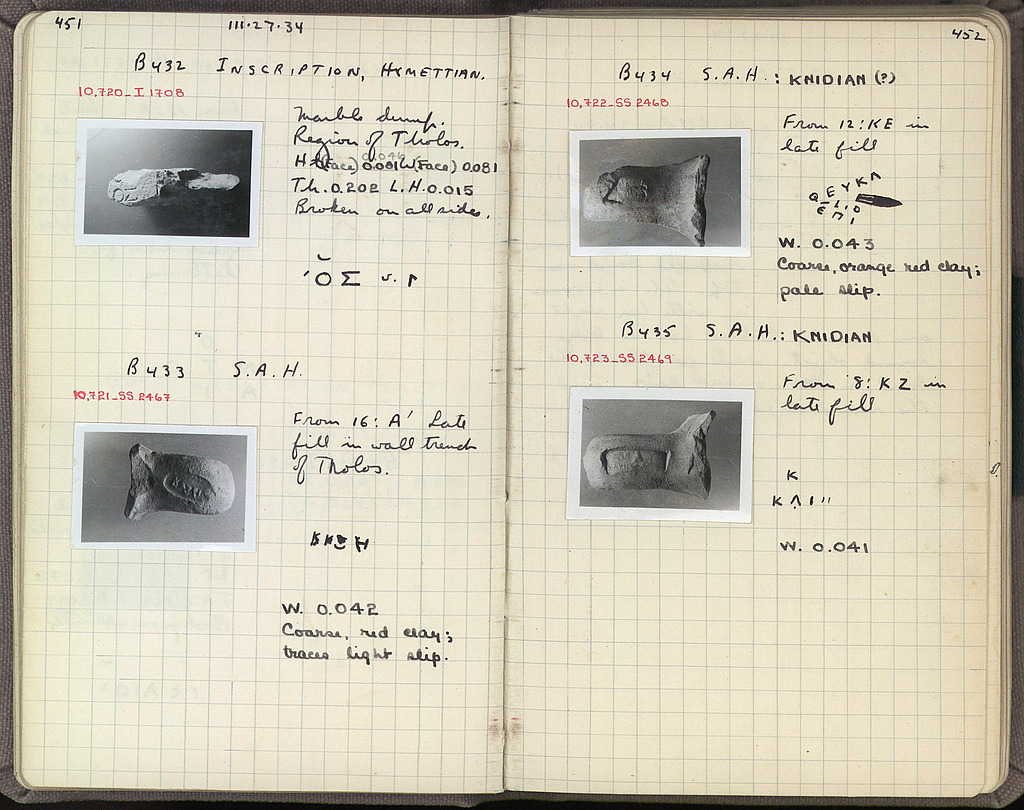 451
111·27·34
B432 INSCRIPTION, HYMETTIAN.
10,720_I 1708
Marble dump.
Region of Tholos.
0.046
H.(Face) 0.081 W(Face) 0.081
Th. 0.202 L.H. 0.015
Broken on all sides.
B433 S.A.H.
10,721_SS 2467
From 16: A' Late
fill in wall trench
of Tholos.
W. 0.042
Coarse, red clay;
traces light slip.
452
B434 S.A.H.: KNIDIAN (?)
10,722_SS 2468
From 12: KE in
late fill
ΕΥΚΛ
W. 0.043
Coarse, orange red clay;
pale slip.
B435 S.A.H.: KNIDIAN
10,723_SS 2469
From 8: KZ in
late fill
Κ
Κ Λ Ι "
W. 0.041